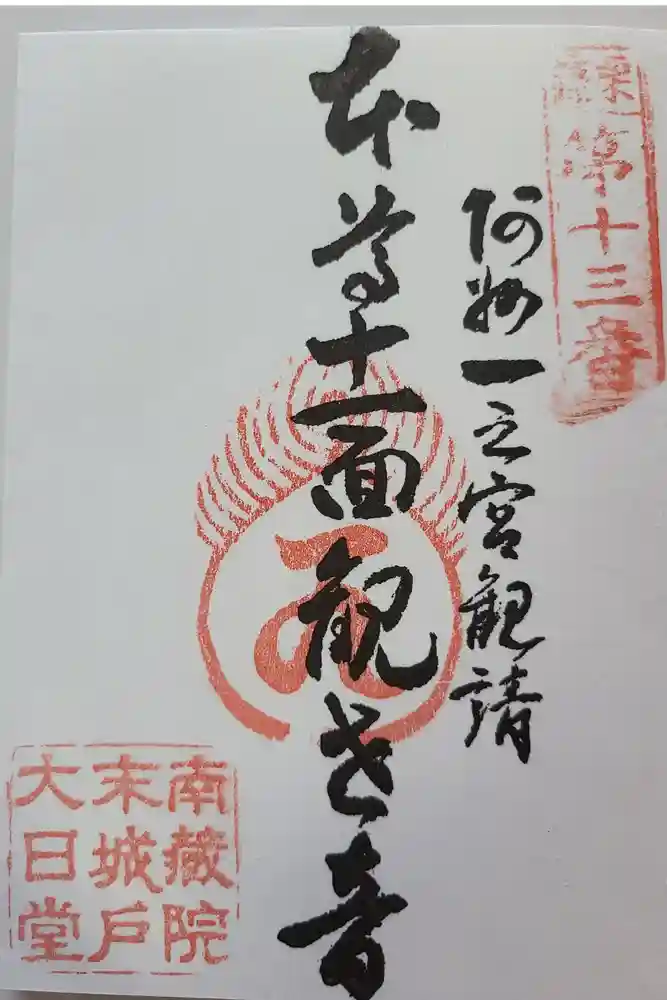 第十三番
阿州一之宮観請
本尊十一面観世音
南蔵院
末城戸
大日堂